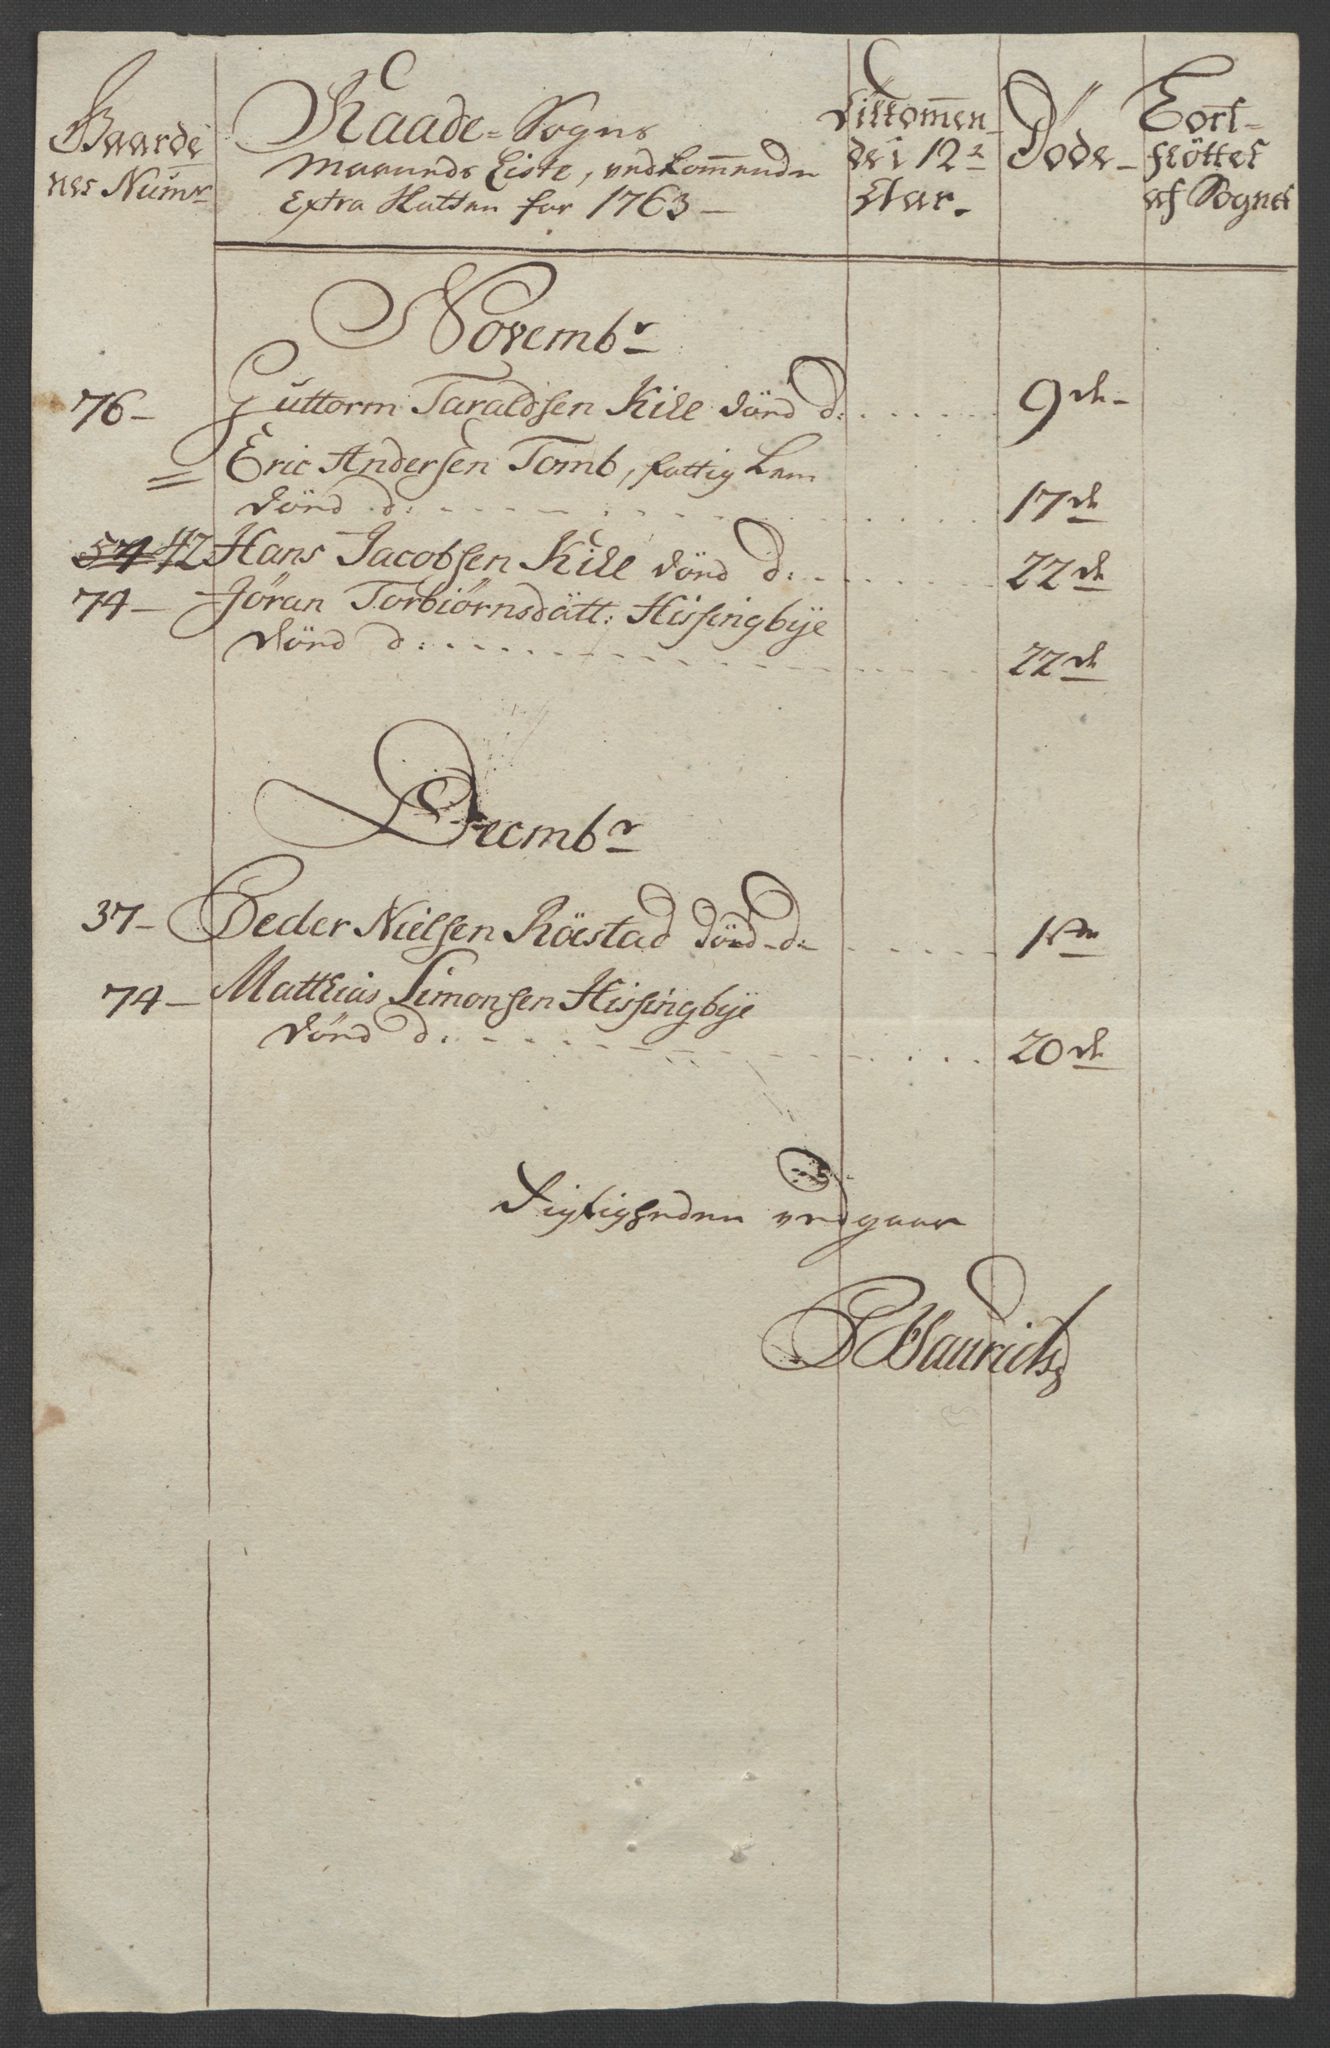 Gaarde
nes Numr
Raade-Sogns
Maaneds Liste, vedkommende
Extra Skatten for 1763 —
Tilkom̅en
de i 12te
Aar.
Døde —
Fort-
fløttet
af Sognet
Novembr
76 — Guttorm Taraldsen Kill dörd d: . . . . . . 9de —
= Eric Andersen Tomb, fattig Lem
dörd d: . . . . . . 17de
54 42 Hans Jacobsen Kill dörd d: . . . . . . 22de
74 — Jøran Torbiørnsdått: Hissingbÿe
dörd d: . . . . . . 22de
Decmbr
37 — Peder Nielsen Röestad dörd d: . . . . . . 1ste
74 — Matthias Simonsen Hissingbÿe
dörd d: . . . . . . 20de
Rigtigheden vedgaar